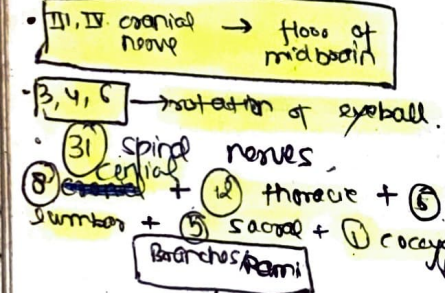 • III, IV cranial nerve → floor of midbrain
• 3, 4, 6 → rotation of eyeball.
• 31 spinal nerves
8 cervical + 12 thoracic + 5
lumbar + 5 sacral + 1 coccy
Branches/Rami